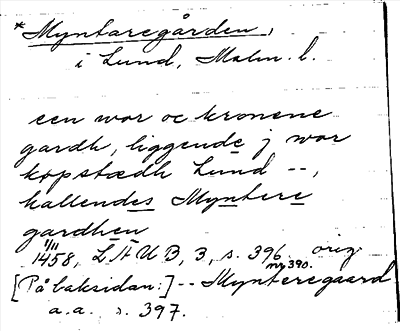 *Myntaregården,
i Lund, Malm. l.
een wor oc kronene
gardh, liggende j wor
köpstædh Lund --,
kallendes Myntere
gardhen
1/11 1458, LÄUB, 3, s. 396 orig.
nr 390.
[På baksidan:] -- Mynteregaard
a.a. s. 397.